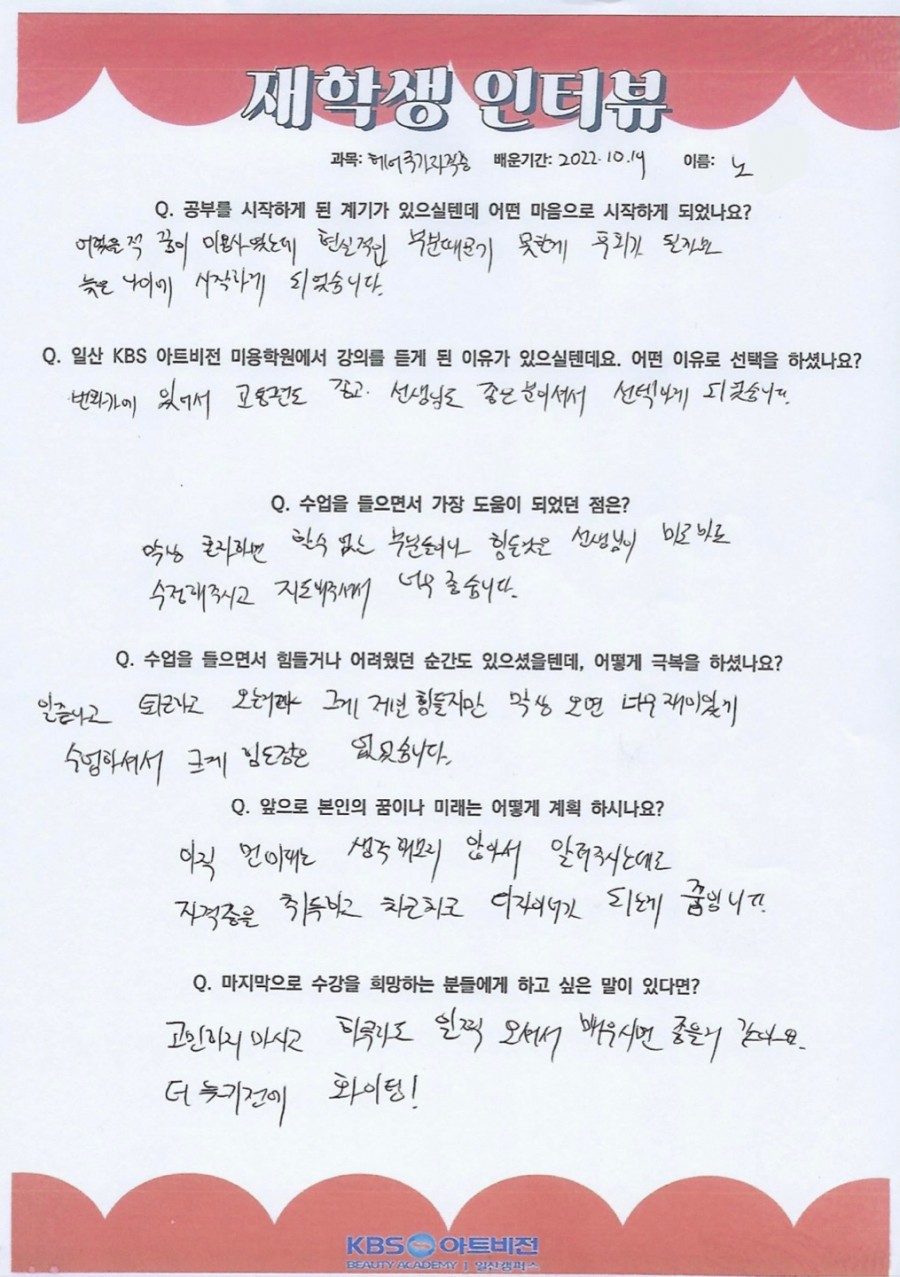 재학생 인터뷰
과목: 헤어국가자격증 배운기간: 2022.10.14 이름: 노
Q. 공부를 시작하게 된 계기가 있으실텐데 어떤 마음으로 시작하게 되었나요?
어렸을 적 꿈이 미용사였는데 현실적인 부분때문기 못한게 후회가 된지라
늦은 나이에 시작하게 되었습니다.
Q. 일산 KBS 아트비전 미용학원에서 강의를 듣게 된 이유가 있으실텐데요. 어떤 이유로 선택을 하셨나요?
번화가에 있어서 교통편도 좋고 선생님도 좋은 분이셔서 선택하게 되었습니다.
Q. 수업을 들으면서 가장 도움이 되었던 점은?
막상 혼자하면 할수 없는 부분들이나 힘든것은 선생님이 바로바로
수정해주시고 지도해주셔서 너무 좋습니다.
Q. 수업을 들으면서 힘들거나 어려웠던 순간도 있으셨을텐데, 어떻게 극복을 하셨나요?
일끝나고 퇴근하고 오는거라 그게 제년 힘들지만 막상 오면 너무 재미있게
수업하셔서 크게 힘든점은 없었습니다.
Q. 앞으로 본인의 꿈이나 미래는 어떻게 계획 하시나요?
아직 먼미래는 생각해보지 않아서 알려주시는데로
자격증을 취득하고 차근차근 디자이너가 되는게 꿈입니다.
Q. 마지막으로 수강을 희망하는 분들에게 하고 싶은 말이 있다면?
고민하지 마시고 하루라도 일찍 오셔서 배우시면 좋을거 같아요.
더 늦기전에 화이팅!
KBS 아트비전
BEAUTY ACADEMY | 일산캠퍼스